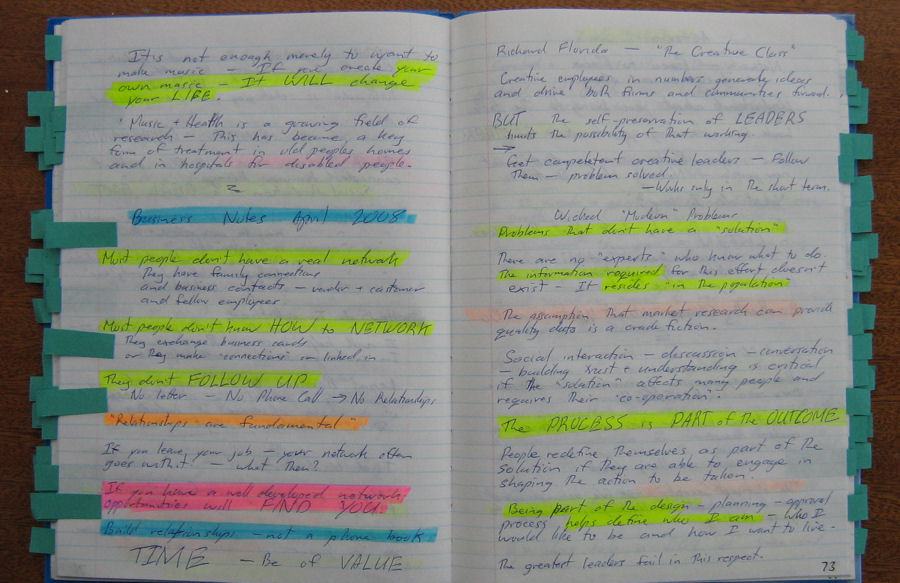 It is not enough merely to want to
make music — If you create your
own music — It WILL change
your LIFE.
"Music + Health is a growing field of
research — This has become a key
form of treatment in old peoples homes
and in hospitals for disabled people.
Business Notes April 2008
Most people don't have a real network
They have family connections
and business contacts — vendor + customer
and fellow employees
Most people don't know HOW to NETWORK
They exchange business cards
or they make "connections" on linked in
They don't FOLLOW UP
No letter — No Phone Call → No Relationships
"Relationships are fundamental"
If you leave your job — your network often
goes with it — what then?
If you have a well developed network
opportunities will FIND YOU.
Build relationships — not a phone book
TIME — Be of VALUE
Richard Florida — "The Creative Class"
Creative employees in numbers generate ideas
and drive both firms and communities forward.
BUT the self-preservation of LEADERS
limits the possibility of that working.
→
Get competent creative leaders — Follow
Them — problem solved.
— Works only in the short term.
Wicked "Modern" Problems
Problems that don't have a "solution"
There are no "experts" who know what to do.
The information required for this effort doesn't
exist — It resides "in the population"
The assumption that market research can provide
quality data is a crude fiction.
Social interaction — discussion — conversation
— building trust + understanding is critical
if the "solution" affects many people and
requires their "co-operation".
The PROCESS is PART of the OUTCOME
People redefine themselves as part of the
solution if they are able to engage in
shaping the action to be taken.
Being part of the design — planning — approval
process helps define who I am — who I
would like to be and how I want to live.
The greatest leaders fail in this respect.
73